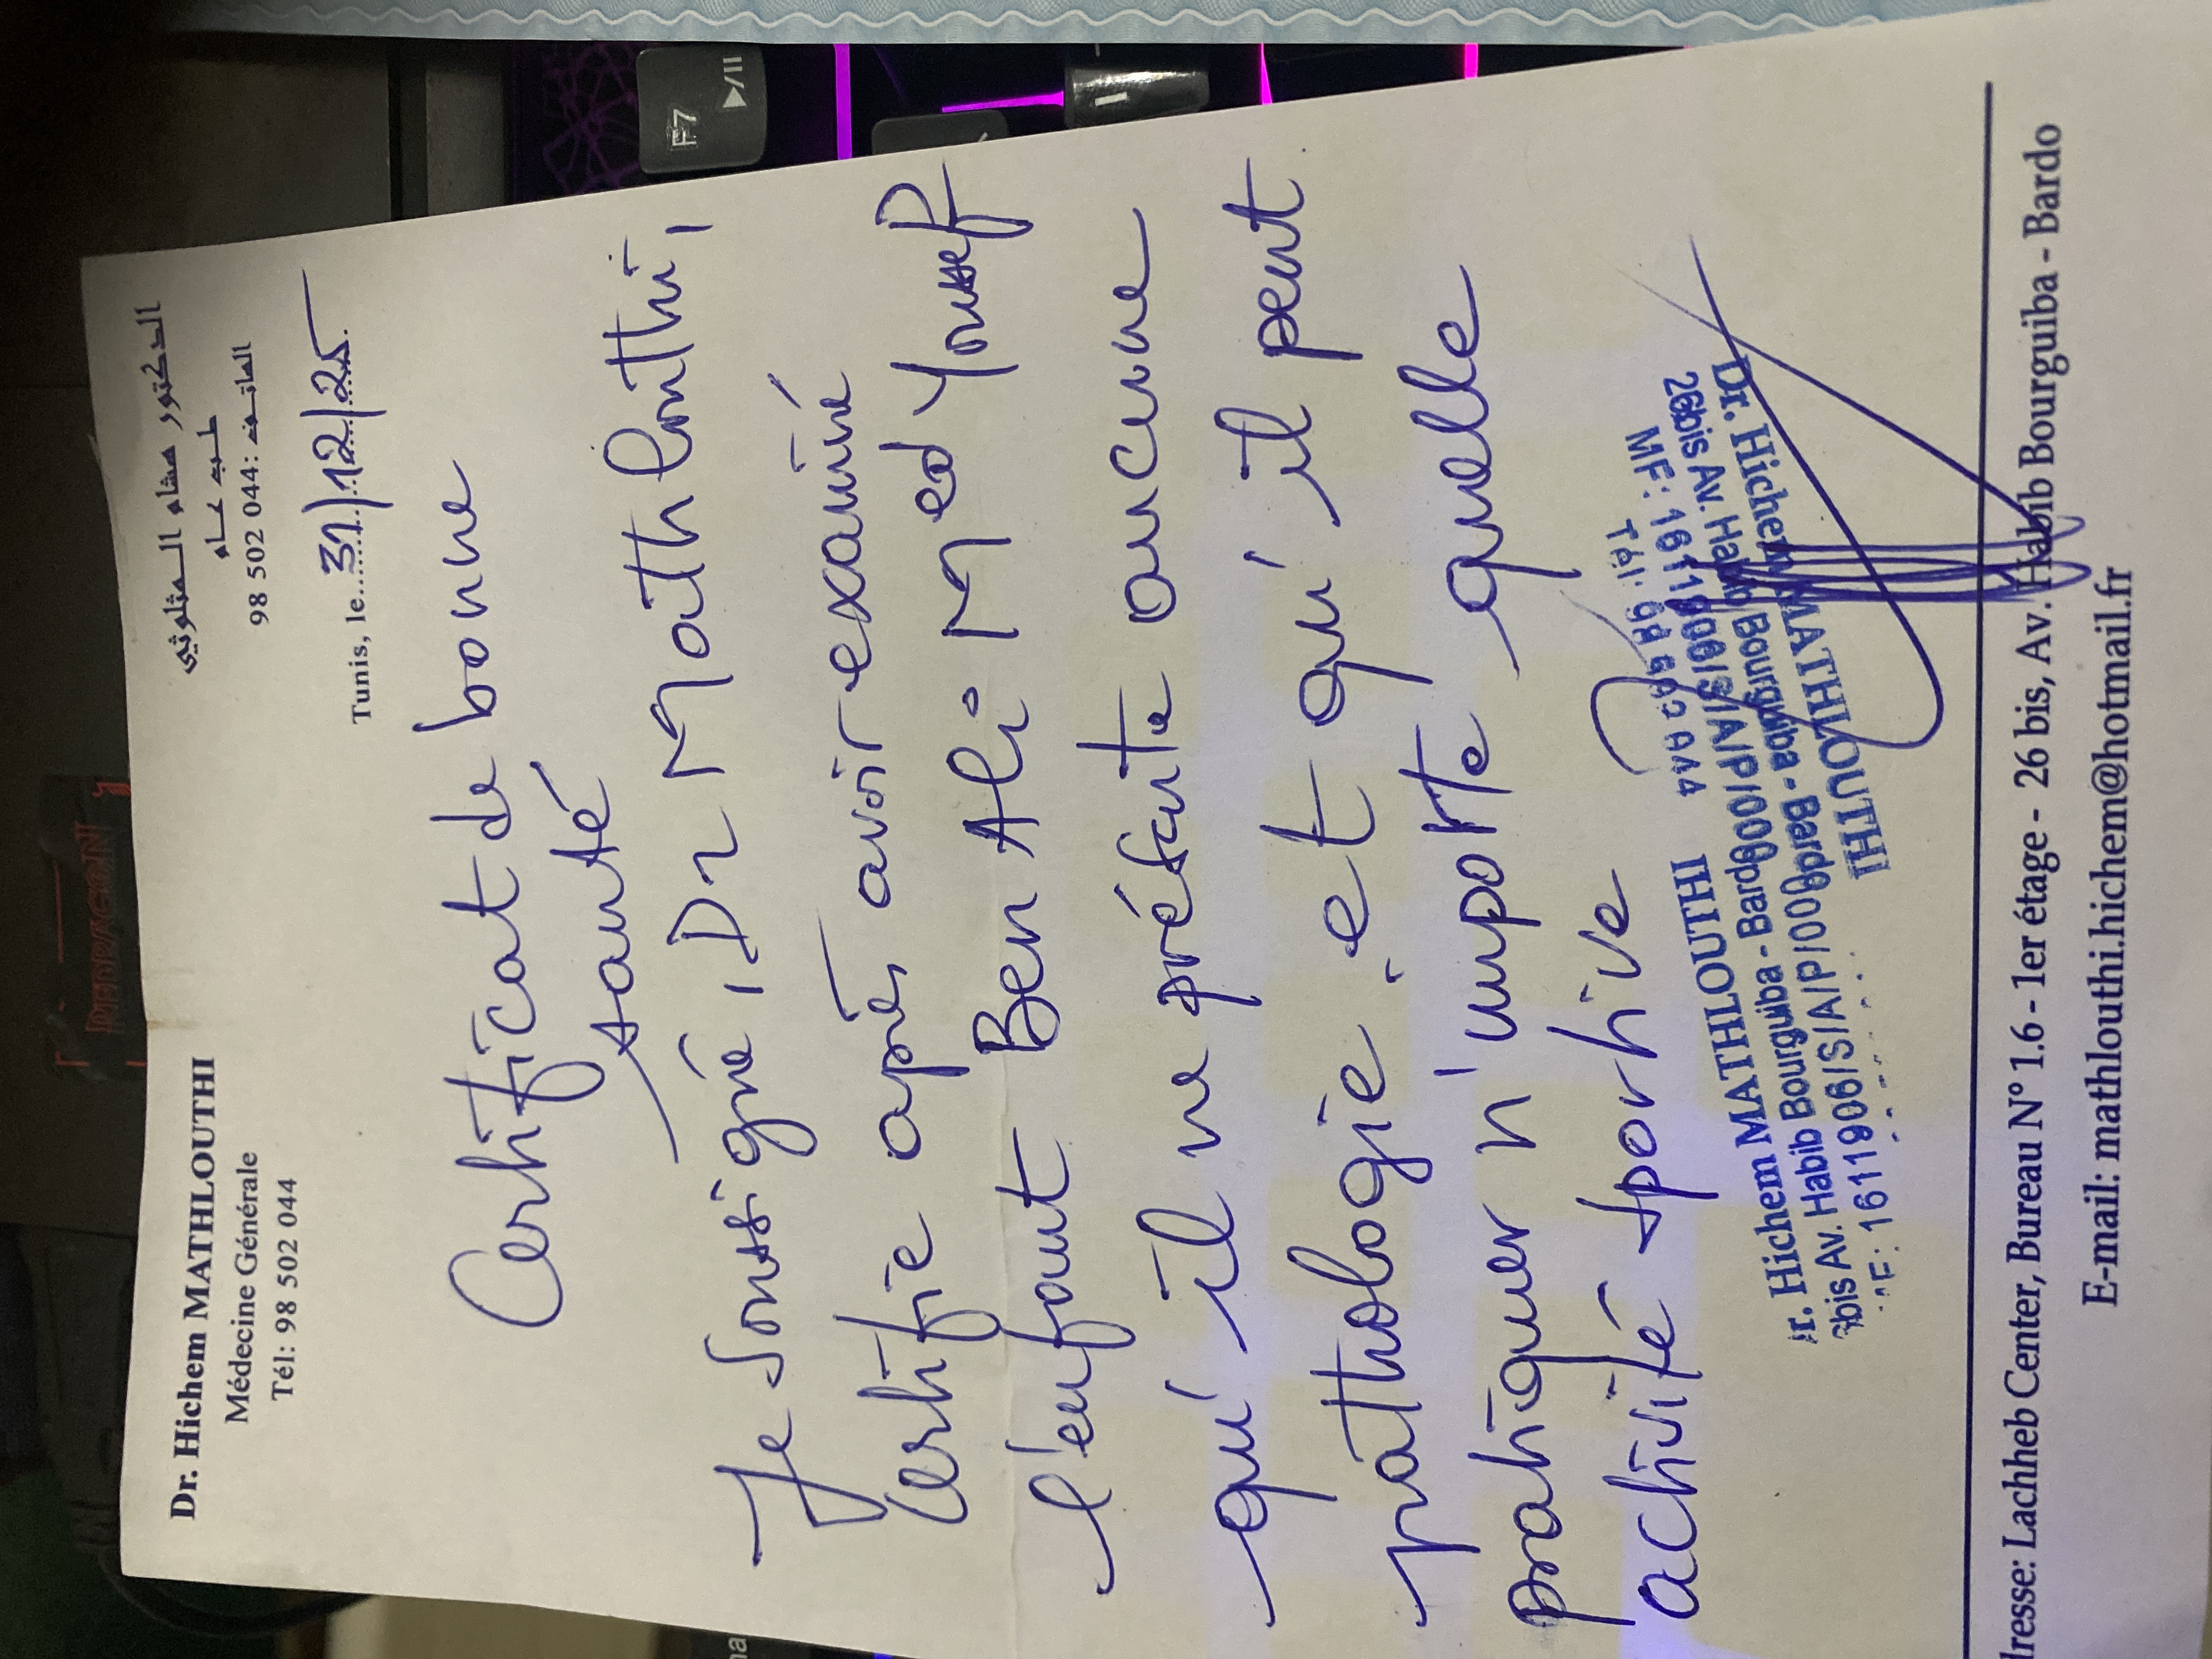 Dr. Hichem MATHLOUTHI
Médecine Générale
Tél: 98 502 044
الدكتور هشام المثلوثي
طبيب عام
الهاتف: 98 502 044
Tunis, le 31/12/25
Certificat de bonne
santé
Je soussigné, Dr Mathlouthi,
certifie après avoir examiné
l'enfant Ben Ali Med Youssef
qu'il ne présente aucune
pathologie et qu'il peut
pratiquer n'importe quelle
activité sportive
Tél: 98 502 044
MF: 1611906/S/A/P/000
26bis Av. Habib Bourguiba - Bardo
Dr. Hichem MATHLOUTHI
r. Hichem MATHLOUTHI
bis Av. Habib Bourguiba - Bardo
F: 1611906/S/A/P/000
resse: Lachheb Center, Bureau N° 1.6 - 1er étage - 26 bis, Av. Habib Bourguiba - Bardo
E-mail: mathlouthi.hichem@hotmail.fr
F7
REDRAGON